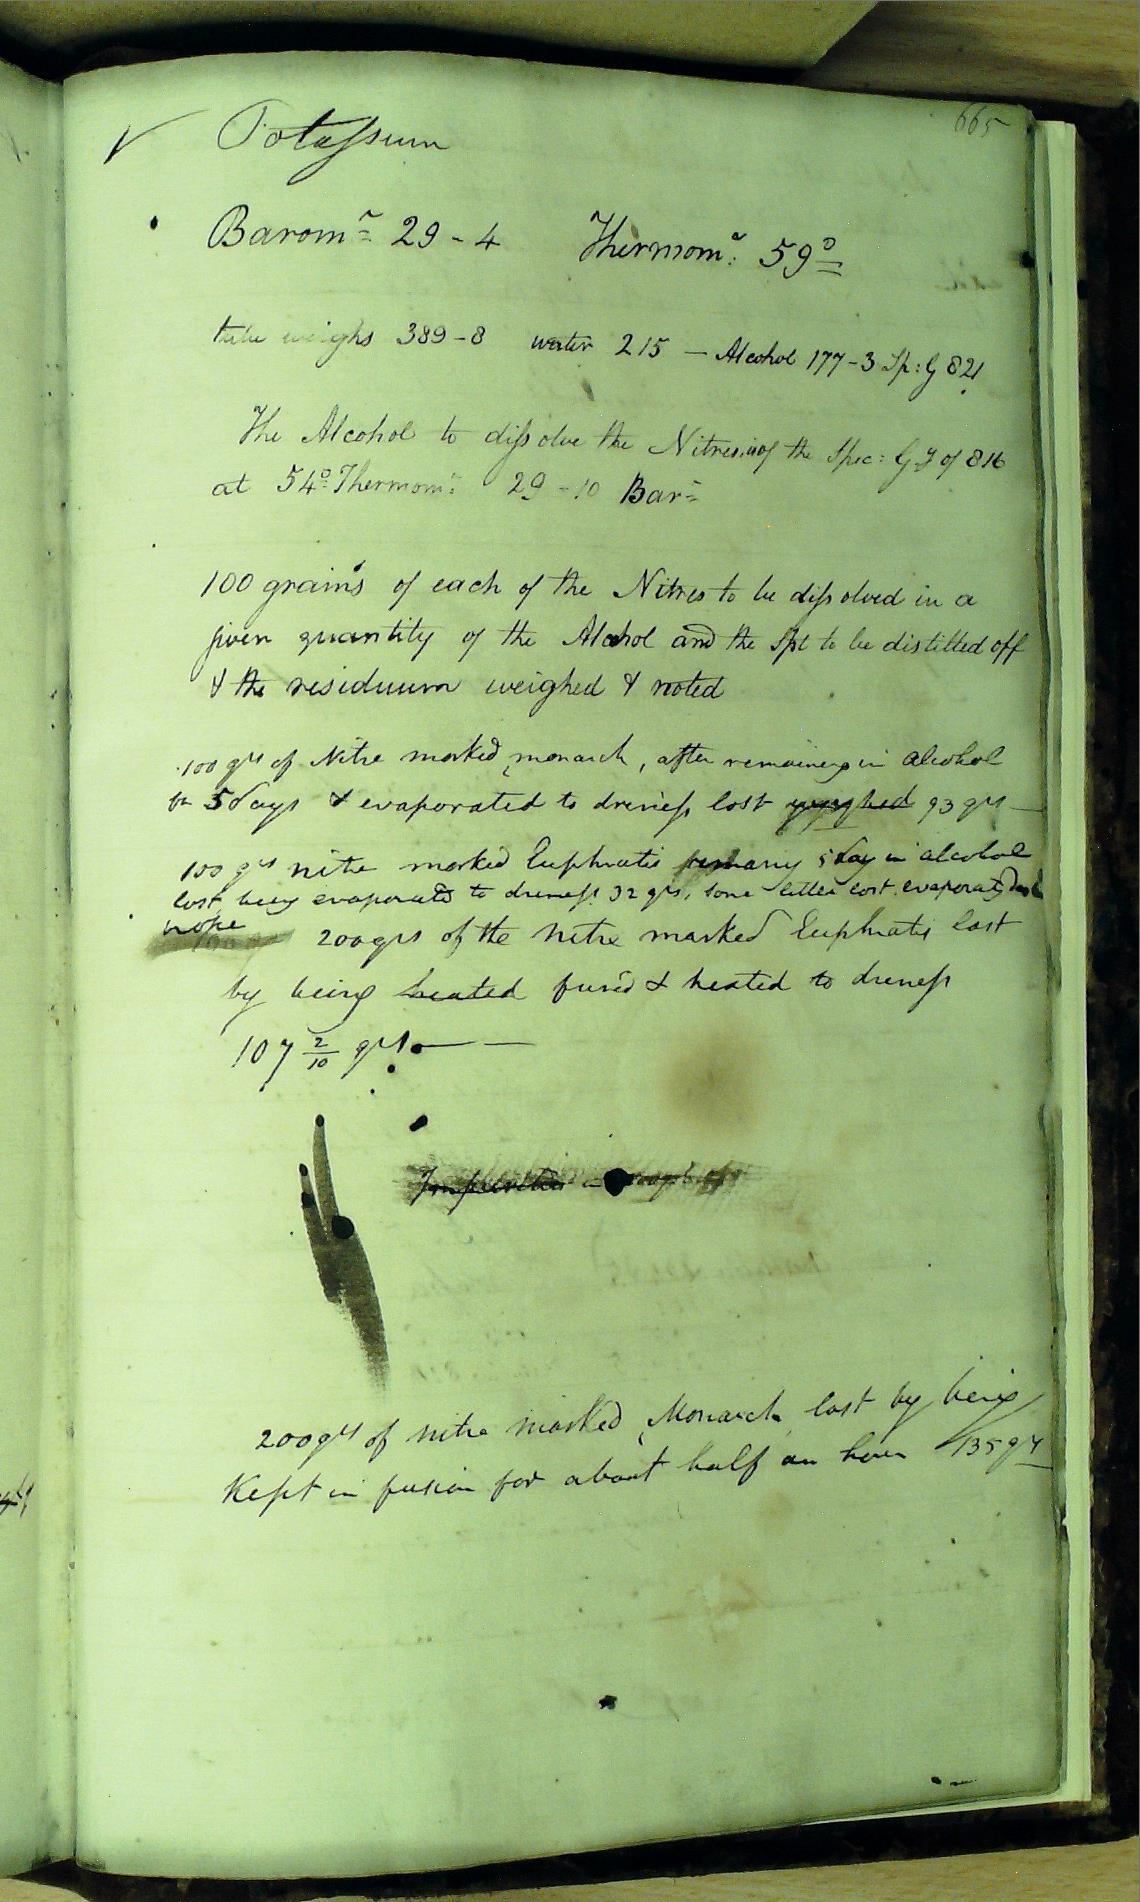 665
Potassium
Baromr 29-4 Thermomr: 59°
tube weighs 389-8 water 215 - Alcohol 177-3 Sp: G 821
The Alcohol to dissolve the Nitres is of the Spec: G of 816
at 54° Thermomr: 29-10 Barr
100 grains of each of the Nitres to be dissolved in a
given quantity of the Alcohol and the Spt to be distilled off
& the residuum weighed & noted
100 grs of Nitre marked monarch, after remaining in alcohol
for 5 days & evaporated to driness lost weighed 93 grs
100 grs nitre marked Euphrates remaing 5 day in alcohol
lost being evaporated to driness 32 grs, some little lost evaporating
nore
200 grs of the nitre marked Euphratis lost
by being heated fused & heated to driness
107 2/10 grs.
Impurities in
200 grs of nitre marked Monarch lost by being
Kept in fusion for about half an hour 135 grs